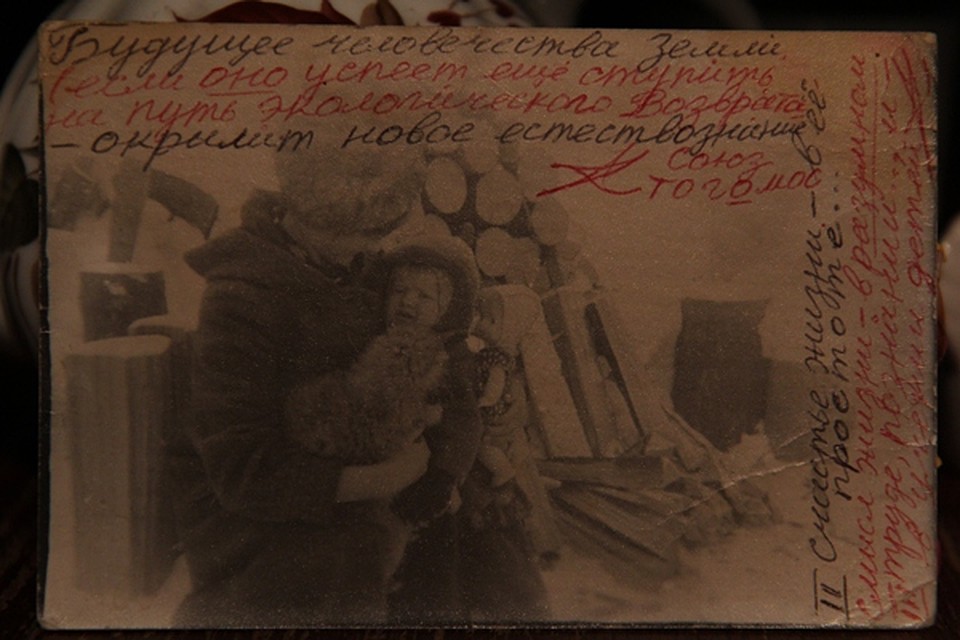 Будущее человечества Земли
(если оно успеет ещё ступить
на путь экологического Возврата)
– окрилит новое естествознание
Союз
того
II Счастье жизни – в её
простоте...
Смысл жизни – в разумном
труде, познании... и –
и детях